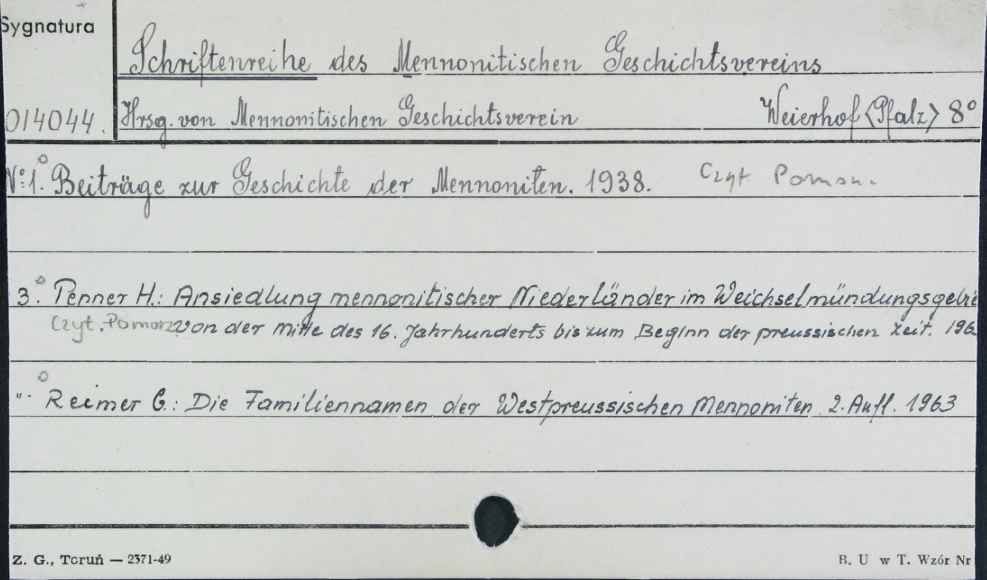 Sygnatura
Schriftenreihe des Mennonitischen Geschichtsvereins
014044. Hrsg. von Mennonitischen Geschichtsverein Weierhof <Pfalz> 8°
N°:1. Beiträge zur Geschichte der Mennoniten. 1938. Czyt Pomon.
3. Penner H.: Ansiedlung mennonitischer Niederländer im Weichselmündungsgebie
Czyt. Pomorz von der Mitte des 16. Jahrhunderts bis zum Beginn der preussischen Zeit. 196
"· Reimer G.: Die Familiennamen der Westpreussischen Mennoniten 2. Aufl. 1963
Z. G., Toruń — 2371-49 B. U w T. Wzór Nr